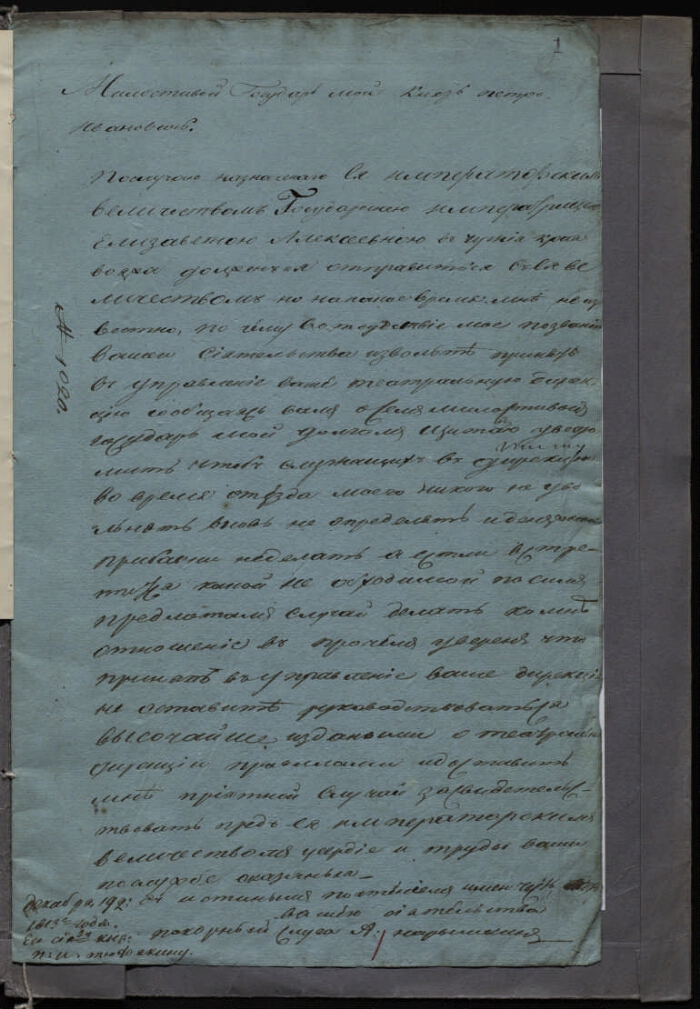 1
Милостивой Государь мой Князь петръ
ивановичь.
Послучаю назначенаго Ея императорскимъ
величествомъ Государынею императрицею
Елизаветою Алексѣевною въ чужія края
вояжа долженъ я отправиться съ Ея ве
личествомъ но на какое время мнѣ не из
вестно, по чему въ отсудствіе мое
вашей Сіятельства извольте принять
въ управленіе ваше театральную дирек
цію сообщая вамъ о семъ милостивой
государь мой долгомъ щитаю уведо
мить чтобъ служащихъ въ дирекціи
во время отъезда моего никого не уво
льнять вновь не определять и денежной
прибавки неделать а естли встре
титца какой не обходимой по симъ
предметамъ случай делать ко мнѣ
отношеніе въ прочемъ уверенъ что
принявъ въ управленіе ваше дирекцію
не оставите руководствоваться
высочайше изданными о театраль
дирекціи правилами и доставить
мнѣ пріятной случай засвидетельс
твовать предъ Ея императорскимъ
величествомъ усердіе и труды ваши
послужбе оказанныя
съ истинымъ почтеніемъ имею честь быть
вашего сіятельства
покорный слуга А: нарышкинъ
декабря 19го:
1813го года.
Ея сіят кня:
п: и: тюфекину.
№ 1020.